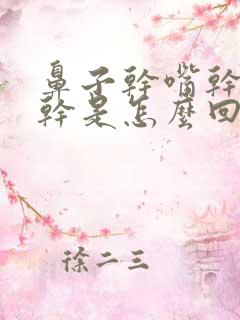 鼻子幹嘴幹
幹是怎麼回
徐二三